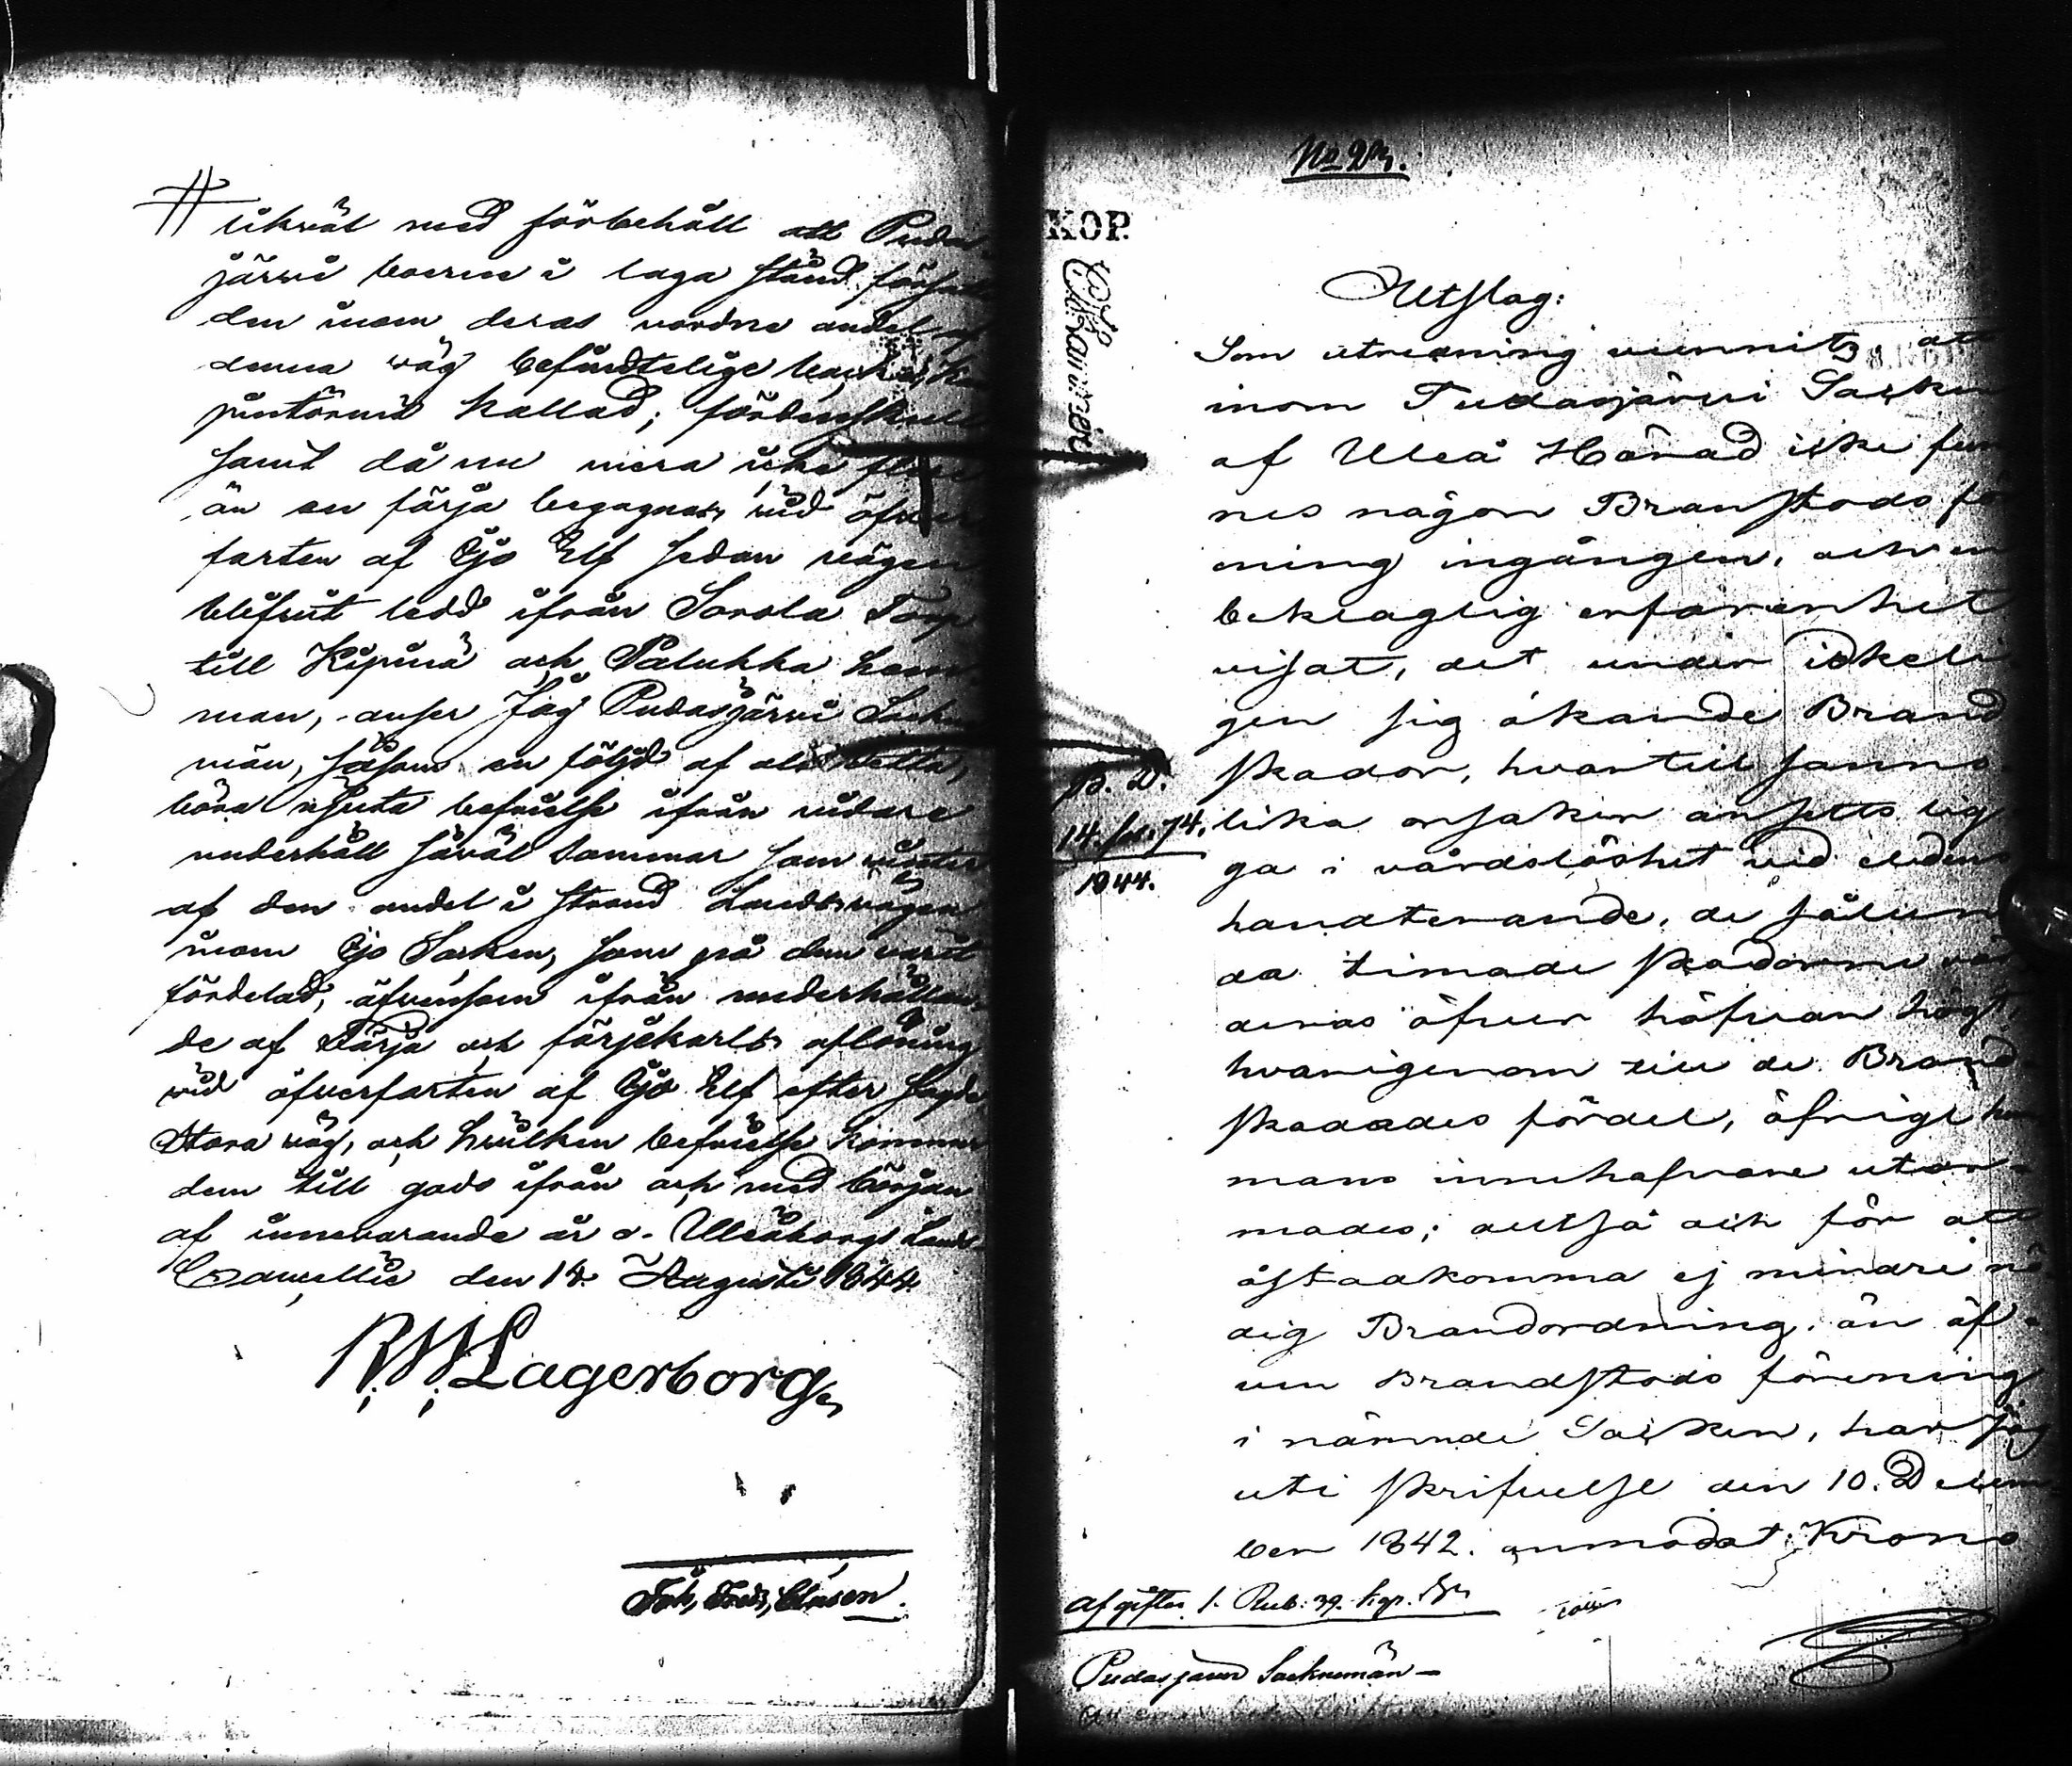 likväl med förbehåll att Puda-
järwi boerne i laga stånd försätta
den inom deras vordne andel af
denna väg befindtelige backe,
kallad; fördenskull
samt då nu mera icke flere
än en färja begagnas vid öfver
farten af Ijo Elf sedan vägen
blifvit ledd ifrån Sorola Torp
till Kipinä och Palukka hem-
man, anser Jag Pudasjärwi Sockne
män, såsom en följd af allt detta,
böra njuta befrielse ifrån vidare
underhåll såväl Sommar som vinter
af den andel i strand Landsvägen
inom Ijo Socken, som på dem varit
fördelad, äfvensom ifrån underhållan-
de af Färja och färjekarls aflöning
vid öfverfarten af Ijo Elf efter sagde
stora väg, och hvilken befrielse kommer
dem till godo ifrån och med början
af innevarande år. Uleåborgs Lands-
Cancellie den 14 Augusti 1844.
RW Lagerborg
Joh, Fredr, Clasen.
No
KOP.
Utslag:
Som utredning vunnits, att
inom Pudasjärvi Socken
af Uleå Härad icke fun
nes någon Branstods före
ning ingången, och en
beklaglig erfarenhet
visat, det under idkeli-
gen sig ökande Brand
skador, hvartill sanno-
lika orsaken ansetts lig
ga i vårdslöshet vid eldens
handterande, de sålun
da timade skadorne vär
deras öfver höfvan högt,
hvarigenom till de Brand-
skadades fördel, öfrige hem
mans innehafvare utar-
mades; altså och för att
åstadkomma ej mindre nö
dig Brandordning, än äf-
ven Brandstods förening
i nämnde Socken, har jag
uti skrifvelse den 10. Decem-
ber 1842. anmodat Krono
B. D.
14. 74.
1844.
Afgifter 1. Rub: 39. kop. Sr
Pudasjärwi Socknemän